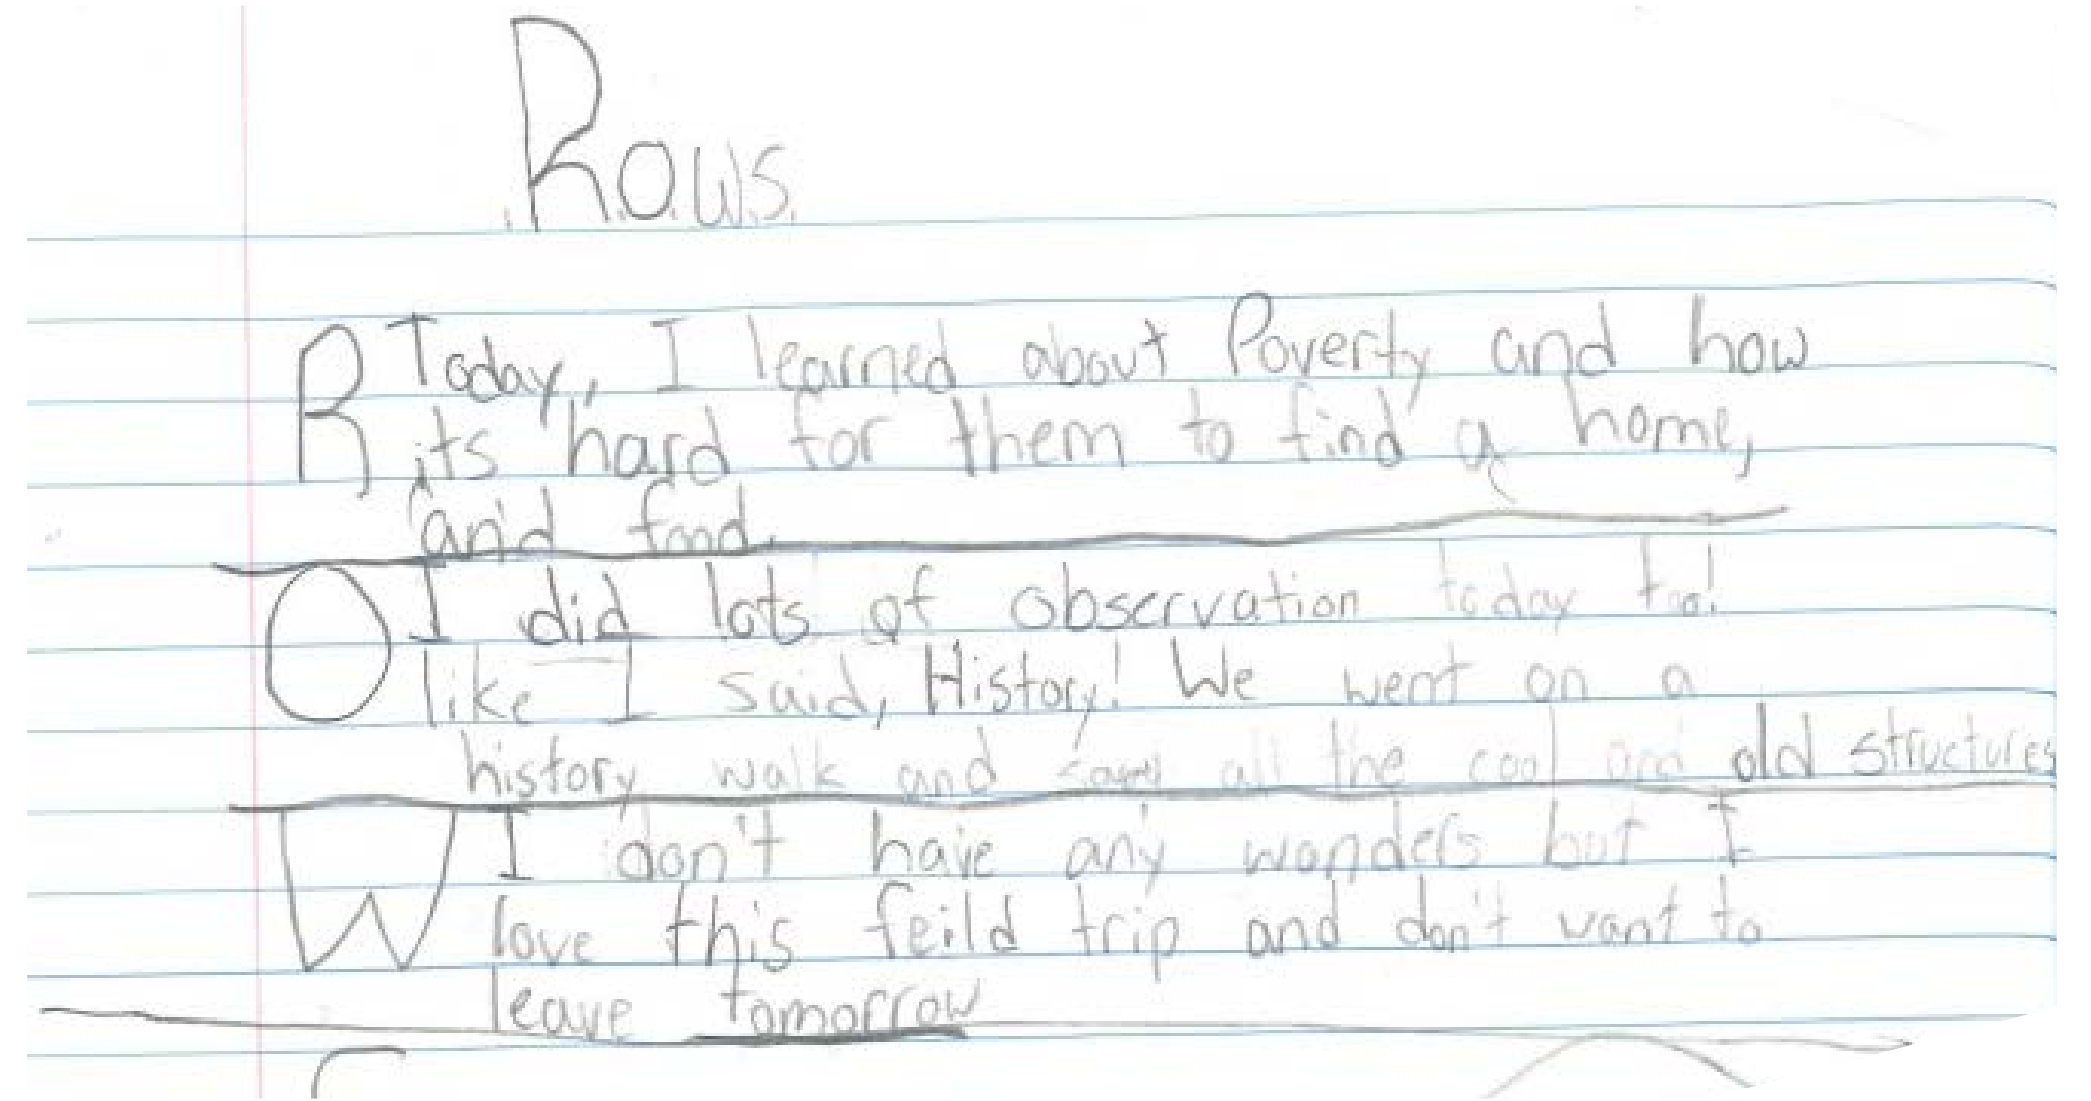 R.O.W.S.
R Today, I learned about Poverty and how
its hard for them to find a home,
and food.
O I did lots of observation today too!
like I said, History! We went on a
history walk and saw all the cool and old structures
W I don't have any wonders but I
love this feild trip and don't want to
leave tomorrow